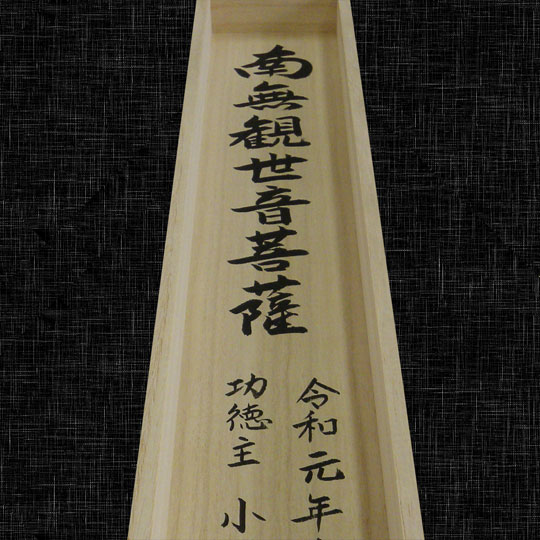 南無観世音菩薩
令和元年
功徳主 小